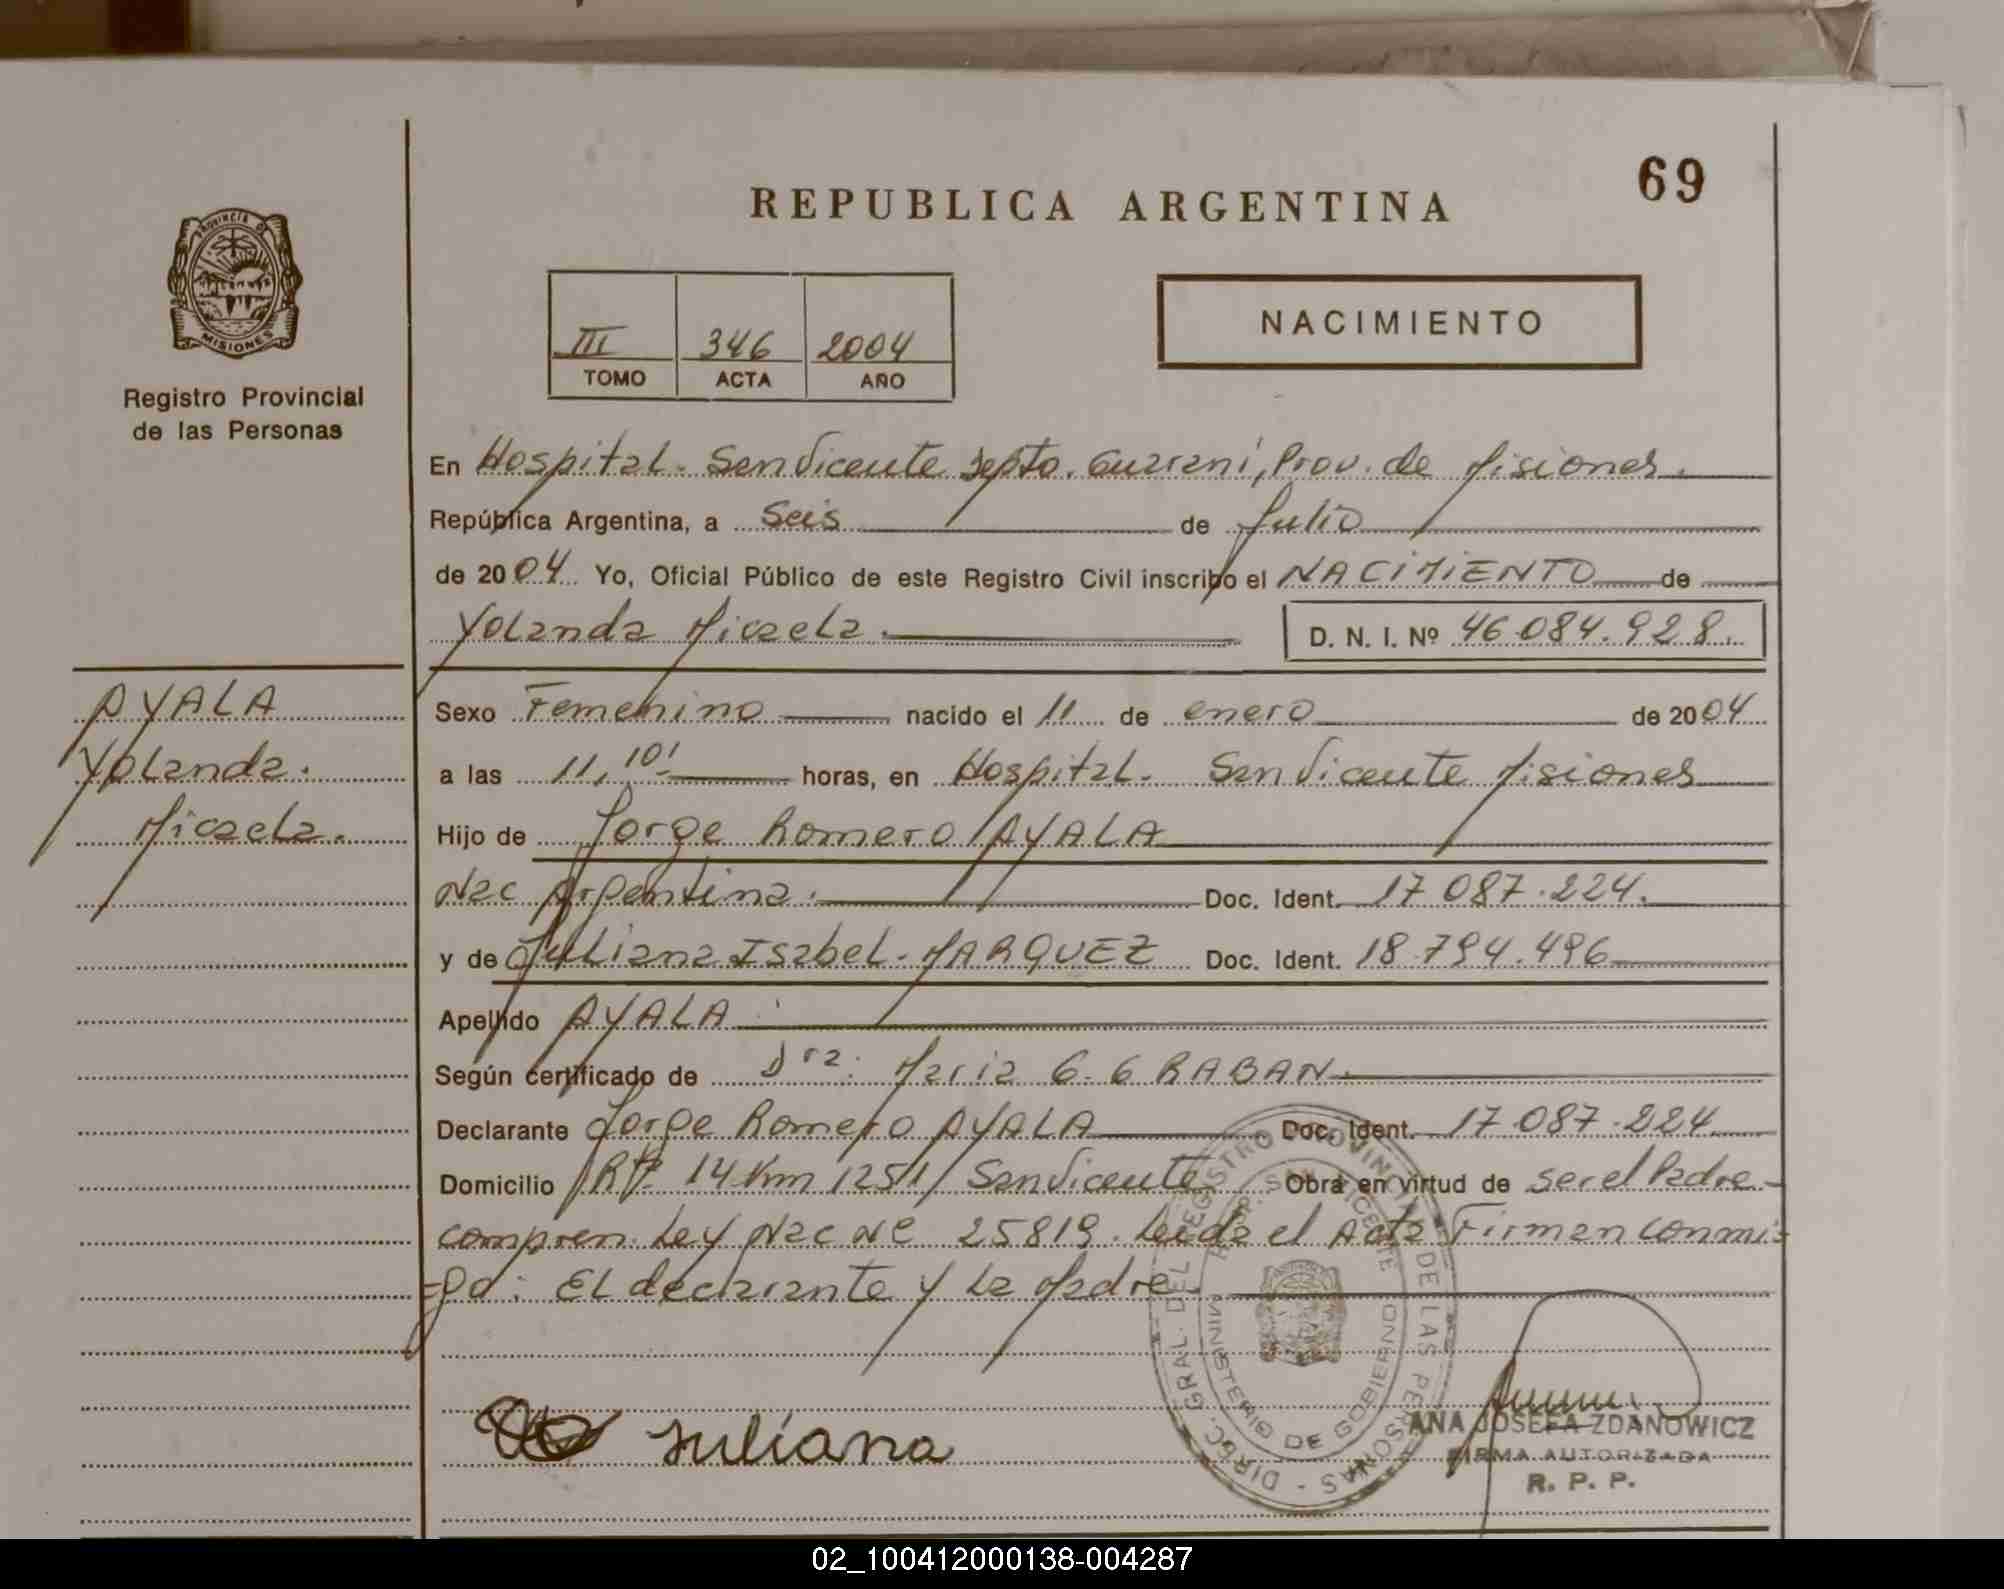 69
REPUBLICA ARGENTINA
PROVINCIA DE
MISIONES
Registro Provincial
de las Personas
III 346 2004
TOMO ACTA AÑO
NACIMIENTO
En Hospital. San Vicente Depto. Guarani, Prov. de Misiones.
República Argentina, a Seis de Julio
de 2004 Yo, Oficial Público de este Registro Civil inscribo el NACIMIENTO de
Yolanda Micaela. D. N. I. Nº 46.084.928.
AYALA
Yolanda.
Micaela.
Sexo Femenino nacido el 11 de enero de 2004
a las 11,10' horas, en Hospital. San Vicente Misiones
Hijo de Jorge Romero AYALA
Nac Argentina. Doc. Ident. 17.087.224.
y de Juliana Isabel. MARQUEZ Doc. Ident. 18.794.496
Apellido AYALA
Según certificado de Dra: Maria G. GRABAN.
Declarante Jorge Romero AYALA Doc. Ident. 17.087.224
Domicilio 14 Km 1251 San Vicente Obra en virtud de ser el Padre
compren. Ley Nac Nº 25819. Leida el Acta Firman conmi-
-go: El declarante y La Madre
DIREC. GRAL. DEL REGISTRO PROVINCIAL DE LAS PERSONAS
R.P.P. SAN VICENTE
MINISTERIO DE GOBIERNO
Juliana
ANA JOSEFA ZDANOWICZ
FIRMA AUTORIZADA
R. P. P.
02_100412000138-004287